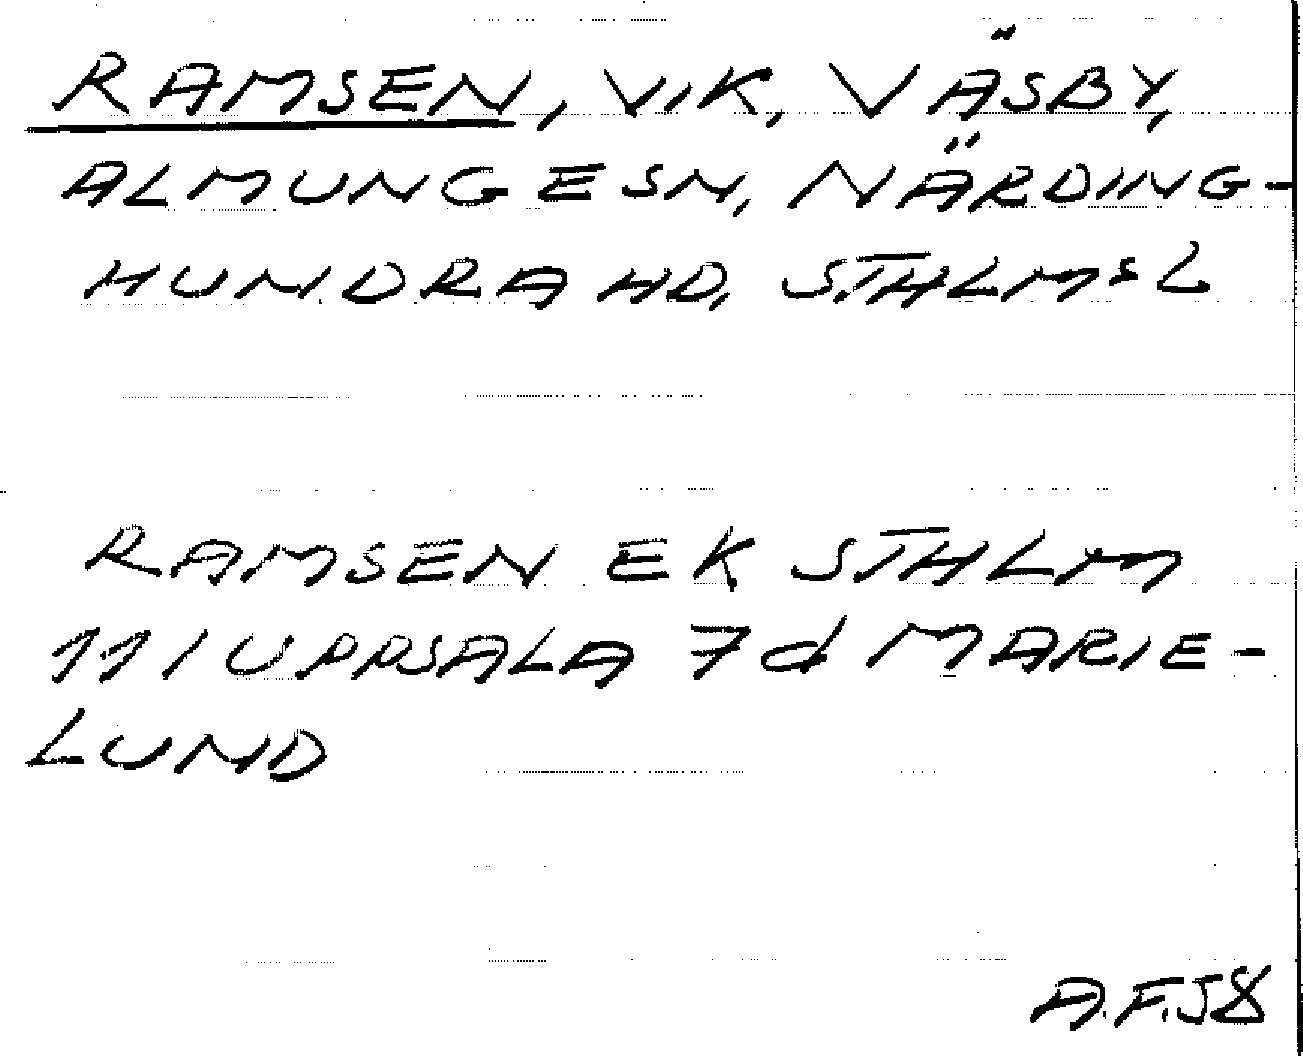 RAMSEN, VIK, VÄSBY,
ALMUNGE SN, NÄRDING-
HUNDRA HD, STHLMS L
RAMSEN EK STHLM
11 I UPPSALA 7d MARIE-
LUND
A.F.58